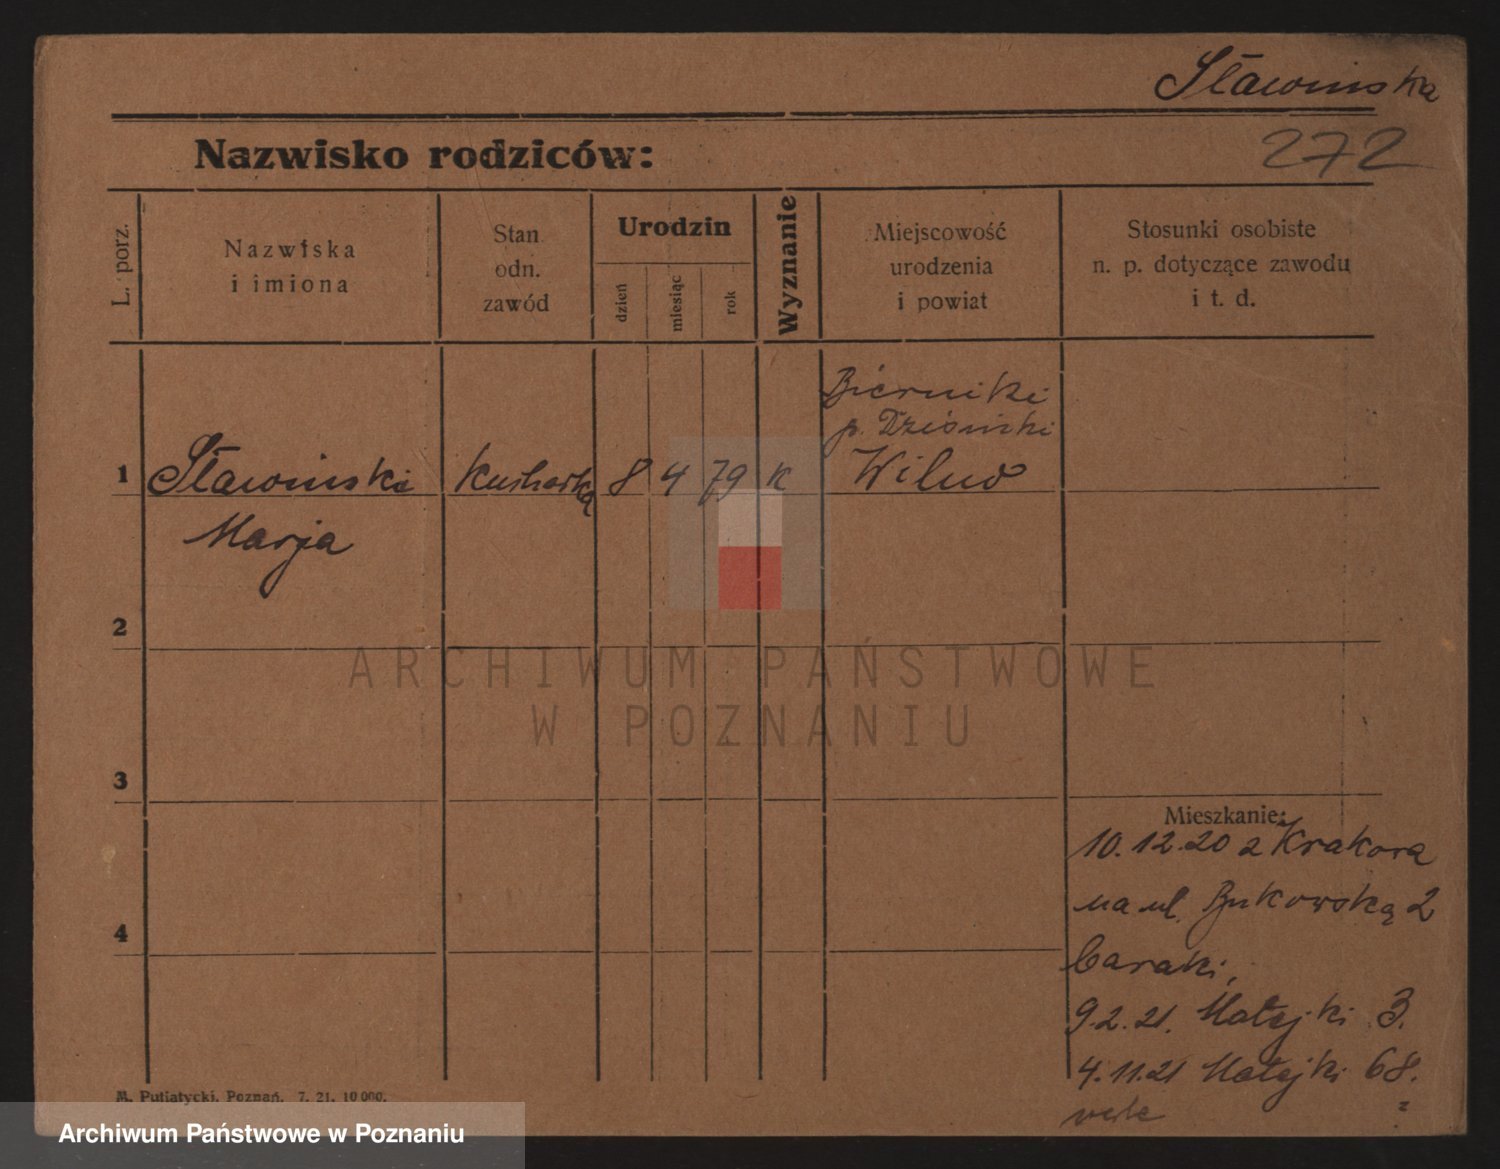 Sławinska
272
Nazwisko rodziców:
L. porz.
Nazwiska
i imiona
Stan
odn.
zawód
Urodzin
dzień
miesiąc
rok
Wyznanie
Miejscowość
urodzenia
i powiat
Stosunki osobiste
n. p. dotyczące zawodu
i t. d.
Bierniki
p. Dzisnicki
1 Sławinska kucharka 8 4 79 K Wilno
Marja
2
3
4
Mieszkanie:
10.12.20 z Krakowa
na ul. Bukowską 2
baraki,
9.2.21. Matejki 3.
4.11.21 Matejki 68.
M. Putiatycki, Poznań. 7. 21. 10 000.
ARCHIWUM PAŃSTWOWE
W POZNANIU
Archiwum Państwowe w Poznaniu